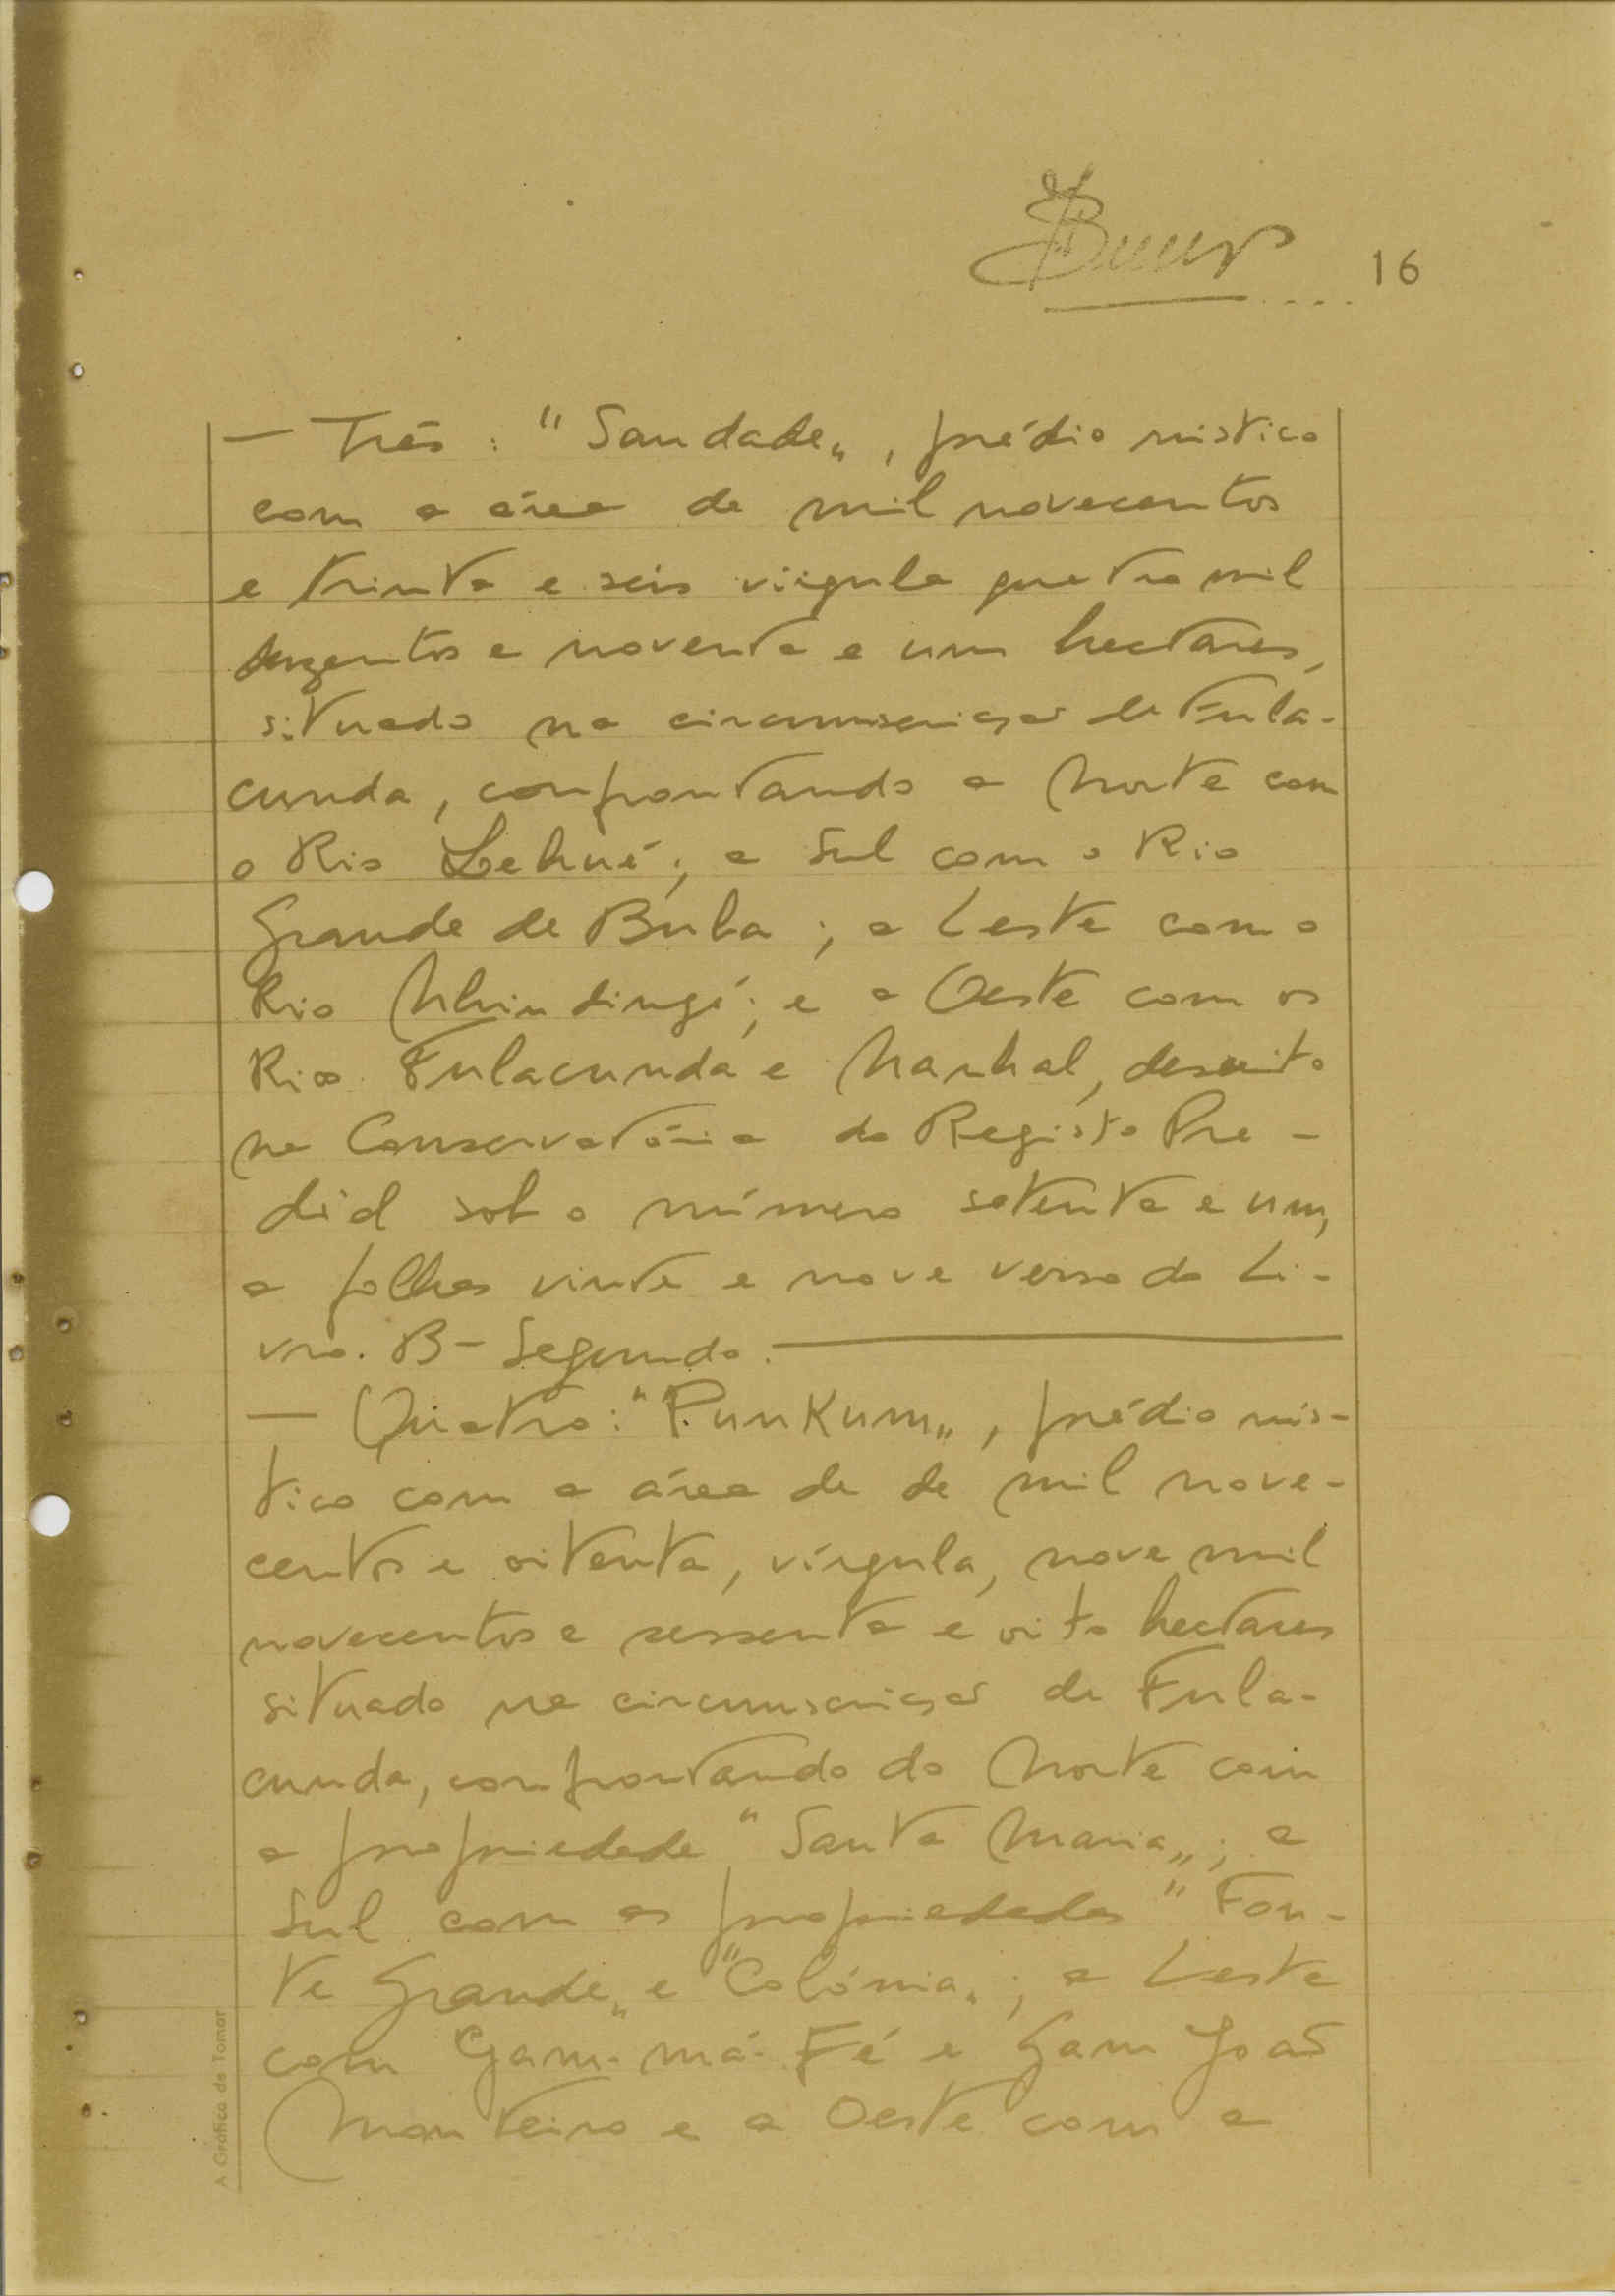 16
— Três: "Saudade„, prédio rústico
com a área de mil novecentos
e trinta e seis vírgula quatro mil
duzentos e noventa e um hectares,
situado na circunscrição de Fula-
cunda, confrontando a Norte com
o Rio Lehué; a Sul com o Rio
Grande de Buba; a Leste com o
Rio Nhindingé; e a Oeste com os
Rios Fulacunda e Nanhal, descrito
na Conservatória do Registo Pre-
dial sob o número setenta e um,
a folhas vinte e nove verso do Li-
vro. B- Segundo.
— Quatro: "Punkum„, prédio rús-
tico com a área de de mil nove-
centos e oitenta, vírgula, nove mil
novecentos e sessenta e oito hectares
situado na circunscrição de Fula-
cunda, confrontando do Norte com
a propriedade "Santa Maria„; a
Sul com as propriedades "Fon-
te Grande„ e "Colónia„; a Leste
com Gam-má-Fé e Gam João
Monteiro e a Oeste com a
A Gráfica de Tomar